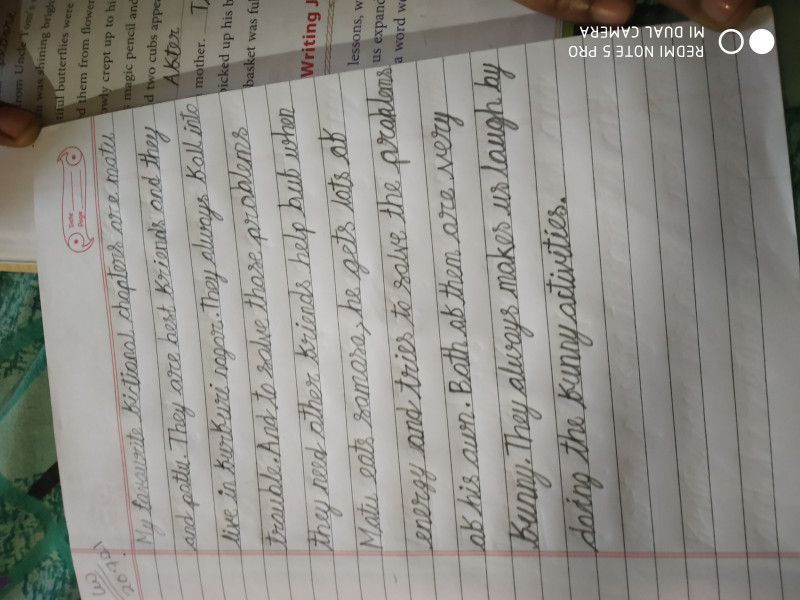 rom Uncle Tom's
was shining brigh
tiful butterflies were
d them from flower
owly crept up to hi
magic pencil and
d two cubs appe
After
mother.
icked up his b
basket was ful
Writing J
lessons, w
us expand
a word w
Date
Page
My favourite fictional chapters are motu
and patlu. They are best friends and they
live in furfuri nagar. They always fall into
trouble. And to solve those problems
they need other friends help but when
Motu eats samosa, he gets lots of
energy and tries to solve the problems
of his own. Both of them are very
funny. They always makes us laugh by
doing the funny activities.
REDMI NOTE 5 PRO
MI DUAL CAMERA